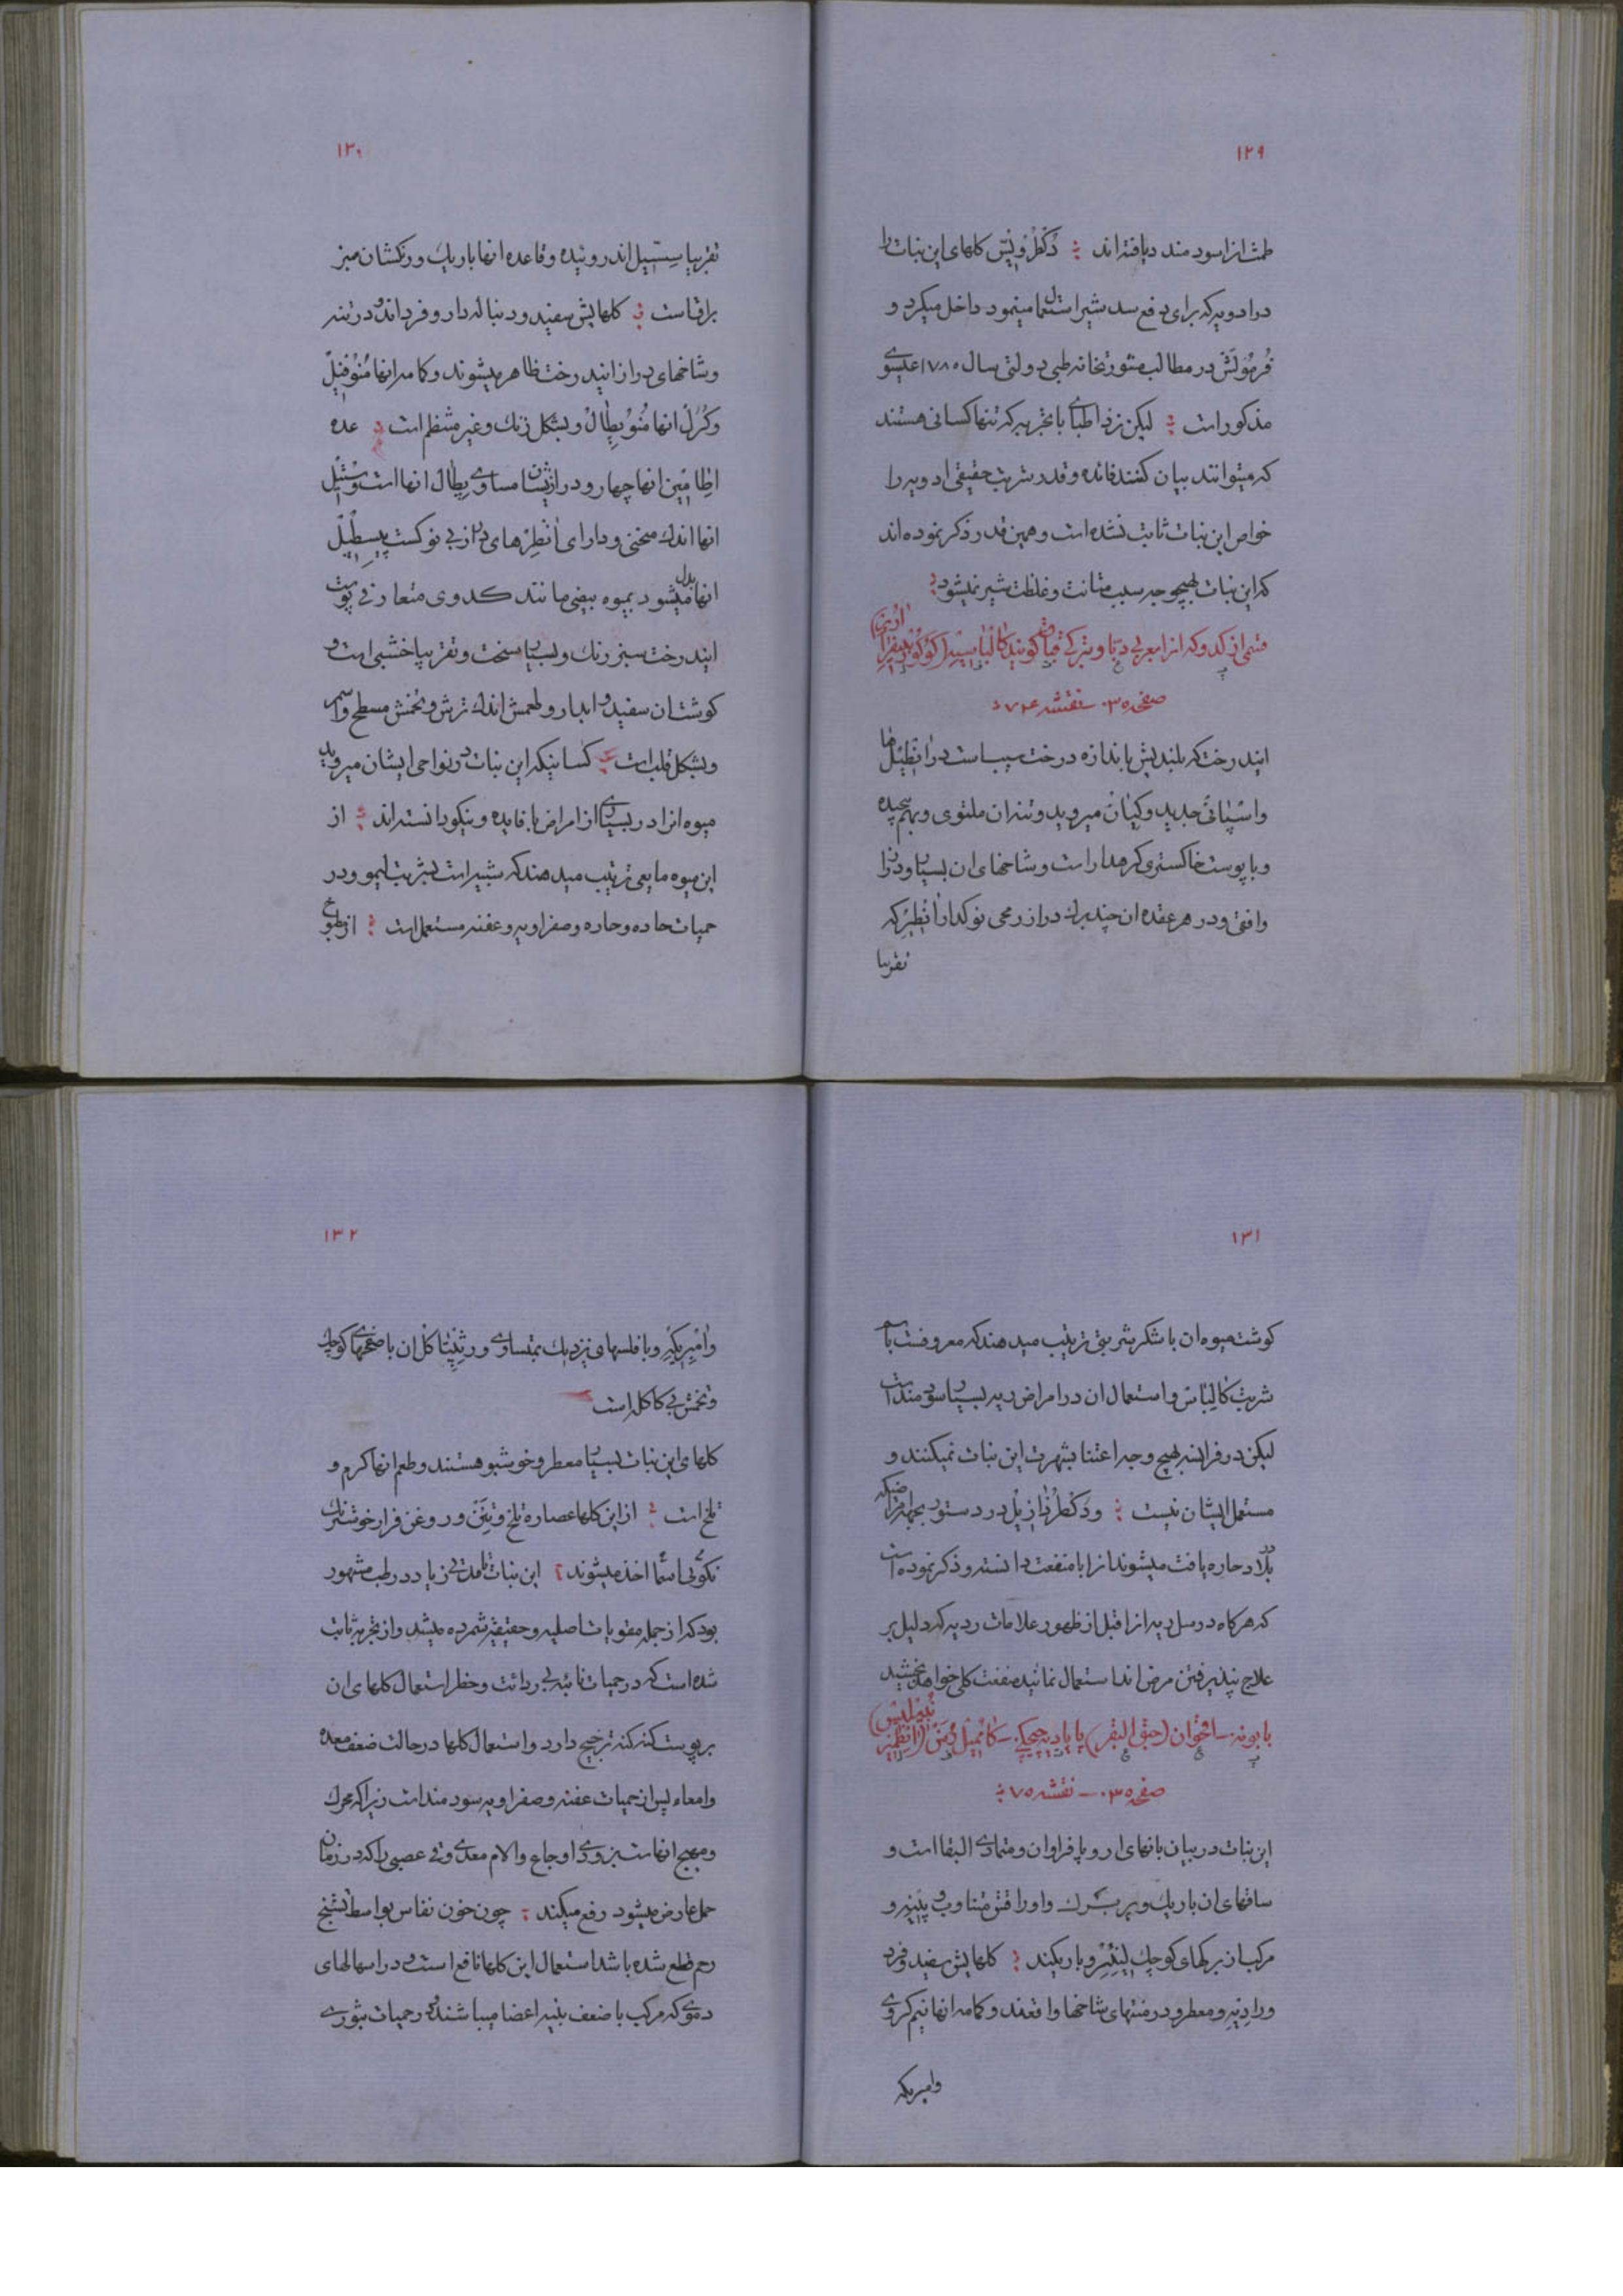 ۱۲۹
طمث انرا سودمند دیافته اند ؛ دکطر ویس کلهای این نبات را
در ادویه که برای دفع سد شیر استعمال مینمود داخل میکرد و
در مطالب طبی دولتی بسال ۱۷۸۰ عیسوی
مذکور است ؛ لیکن نزد اطبای با تجربه که تنها کسانی هستند
که میتوانند بیان کنند فائده و قدر و تربت حقیقی ادویه را
خواص این نبات ثابت نشده است و همین قدر ذکر نموده اند
که این نبات بهیچوجه سبب متانت و غلظت شیر نمیشود ؛
قسمی از کدو که انرا بعربی دبّا و بترکی قباق کویند
صفحه ۰۳۵ نقشه ۷۴ ؛
ایندرخت که بلندیش باندازه درخت سیب است در انطیلها
و اسپانی جدید و کیان میروید و تنه ان ملتوی و بهم پیچیده
و با پوست خاکستری کرهدار است و شاخهای ان بسیار و دراز
وافقی و در هر عقده ان چند برک دراز رمحی نوکدار انطیر که
تقریبا
۱۳۰
تقریبا سسیل اند روئیده و قاعده انها باریک و رنکشان سبز
براق است ؛ کلهایش سفید و دنباله دار و فرداند و در تنه
و شاخهای دراز ایندرخت ظاهر میشوند و کامه انها منوفیل
و کرل انها منوبطال و بشکل زنک و غیر منتظم است ؛ عده
اطامین انها چهار و درازیشان مساوی بطال انها است و ستیل
انها اندک منحنی و دارای انطرهای دراز بی نوک است پیسطیل
انها بدل میشود بمیوه بیضی مانند کدوی متعارفی پوست
ایندرخت سبز رنک و بسیار سخت و تقریبا خشبی است و
کوشت ان سفید و ابدار و طعمش اندک ترش و تخمش مسطح و اسمر
و بشکل قلب است ؛ کسانیکه این نبات در نواحی ایشان میروید
میوه انرا در بسیاری از امراض با فایده و نیکو دانسته اند ؛ از
این میوه مایعی ترتیب میدهند که شبیه است بشربت لیمو و در
حمیات حاده و حاره و صفراویه و عفنه مستعمل است ؛ از مطبوخ
۱۳۱
کوشت میوه ان با شکر شربتی ترتیب میدهند که معروفست باسم
شربت کالباس و استعمال ان در امراض ریه بسیار سودمند است
لیکن در فرانسه بهیچ وجه اعتنا بشهرت این نبات نمیکنند و
مستعمل ایشان نیست ؛ و دکطر در دستور بجهة امراضیکه
در بلاد حاره یافت میشوند انرا با منفعت دانسته و ذکر نموده است
که هرکاه در سل ریه انرا قبل از ظهور علامات ردیه که دلیل بر
علاج نپذیرفتن مرض اند استعمال نمایند منفعت کلی خواهد بخشید
بابونه اقحوان (حبق البقر) پاپادیه چیچکی
صفحه ۰۳۵ نقشه ۷۵ ؛
این نبات در بیابانهای اروپا فراوان و متمادی البقا است و
ساقهای ان باریک و پر برک و اوراقش متناوب و پنیز و
مرکب از برکهای کوچک لینئر و باریکند ؛ کلهایش سفید و فرد
و رادیه و معطر و در منتهای شاخها واقعند و کامه انها نیم کروی
وامبریکه
۱۳۲
وامبریکه و با فلسهای نزدیک بتساوی و رثپتاکل ان با صفحهای کوچک
و تخمش بی کاکل است
کلهای این نبات بسیار معطر و خوشبو هستند و طعم انها کرم و
تلخ است ؛ از این کلها عصاره تلخ و تنن و روغن فرار خوشرنک
نیکوئی اسما اخذ میشوند ؛ این نبات تا مدتی زیاد در طب مشهور
بود که از جمله مقویات اصلیه و حقیقیه شمرده میشد و از تجربه ثابت
شده است که در حمیات نائبه بی ردائت و خطر استعمال کلهای ان
بر پوست کنه کنه ترجیح دارد و استعمال کلها در حالت ضعف معده
و امعاء پس از حمیات عفنه و صفراویه سودمند است زیرا که محرک
و مهیج انهاست بزودی اوجاع و الام معدی و قی عصبی را که در زمان
حمل عارض میشود رفع میکند ؛ چون خون نفاس بواسطه تشنج
رحم قطع شده باشد استعمال این کلها نافع است و در اسهالهای
دموی که مرکب با ضعف بنیه اعضا میباشند و در حمیات بثوری